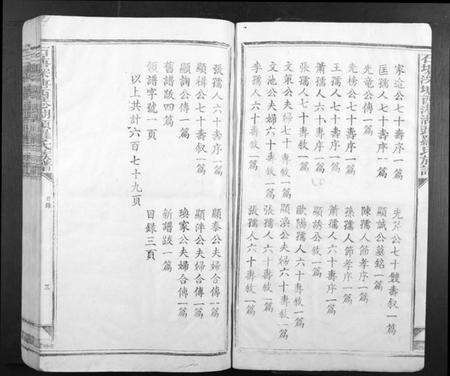 家達公七十壽序一篇
匡孺七十壽序一篇
先竜公傳一篇
先
王孺人七十壽序一篇
蕭孺人六十壽序一篇
張孺人七十壽敘一篇
文渠公夫婦六十壽敘一篇
文池公夫婦六十壽敘一篇
李孺人六十壽敘一篇
公七十雙壽敘一篇
顯誠公墓銘一篇
陳孺人節孝序一篇
張孺人節孝序一篇
蕭孺人六十壽序一篇
顯誘公敘一篇
歐陽孺人六十壽敘一篇
顯渙公夫婦六十壽敘一篇
張孺人七十壽敘一篇
張孺人六十壽敘一篇
張孺人六十壽序一篇
顯樹公七十壽敘一篇
顯詢公傳一篇
舊譜跋四篇
領譜字號一頁
以上共計六百七十九頁
顯泰公夫婦合傳一篇
顯洋公夫婦合傳一篇
煥家公夫婦合傳一篇
新譜跋一篇
目錄三頁
目錄
三